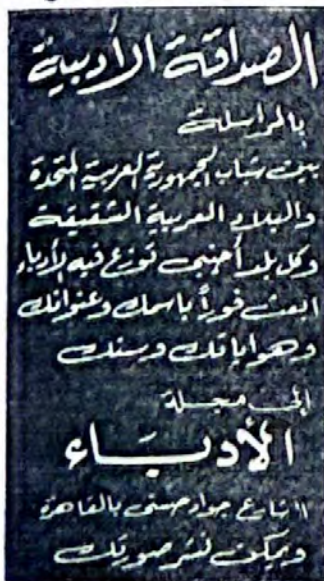 الصداقة الأدبية
بالمراسلة
بين شباب الجمهورية العربية المتحدة
والبلاد العربية الشقيقة
وكل بلد أجنبى توزع فيه الأدباء
ابعث فوراً باسمك وعنوانك
وهواياتك وسنك
إلى مجلة
الأدباء
١١ شارع جواد حسنى بالقاهرة
ويمكن نشر صورتك